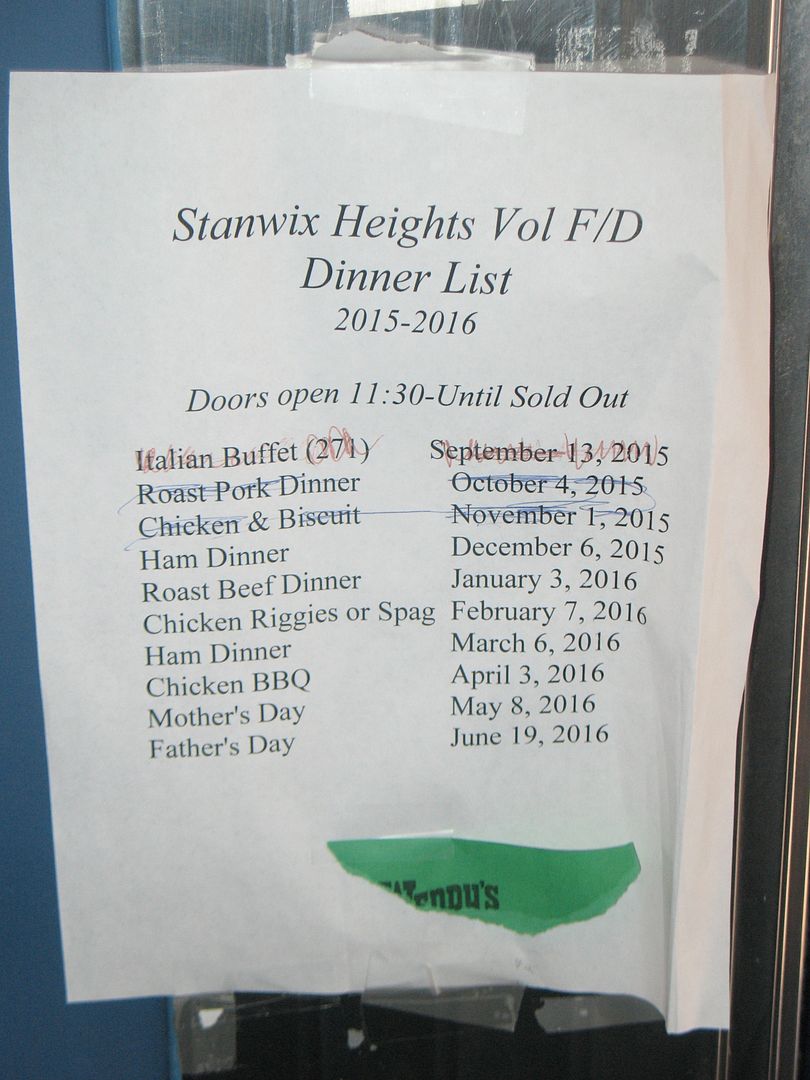 Stanwix Heights Vol F/D
Dinner List
2015-2016
Doors open 11:30-Until Sold Out
Italian Buffet (271) September 13, 2015
Roast Pork Dinner October 4, 2015
Chicken & Biscuit November 1, 2015
Ham Dinner December 6, 2015
Roast Beef Dinner January 3, 2016
Chicken Riggies or Spag February 7, 2016
Ham Dinner March 6, 2016
Chicken BBQ April 3, 2016
Mother's Day May 8, 2016
Father's Day June 19, 2016